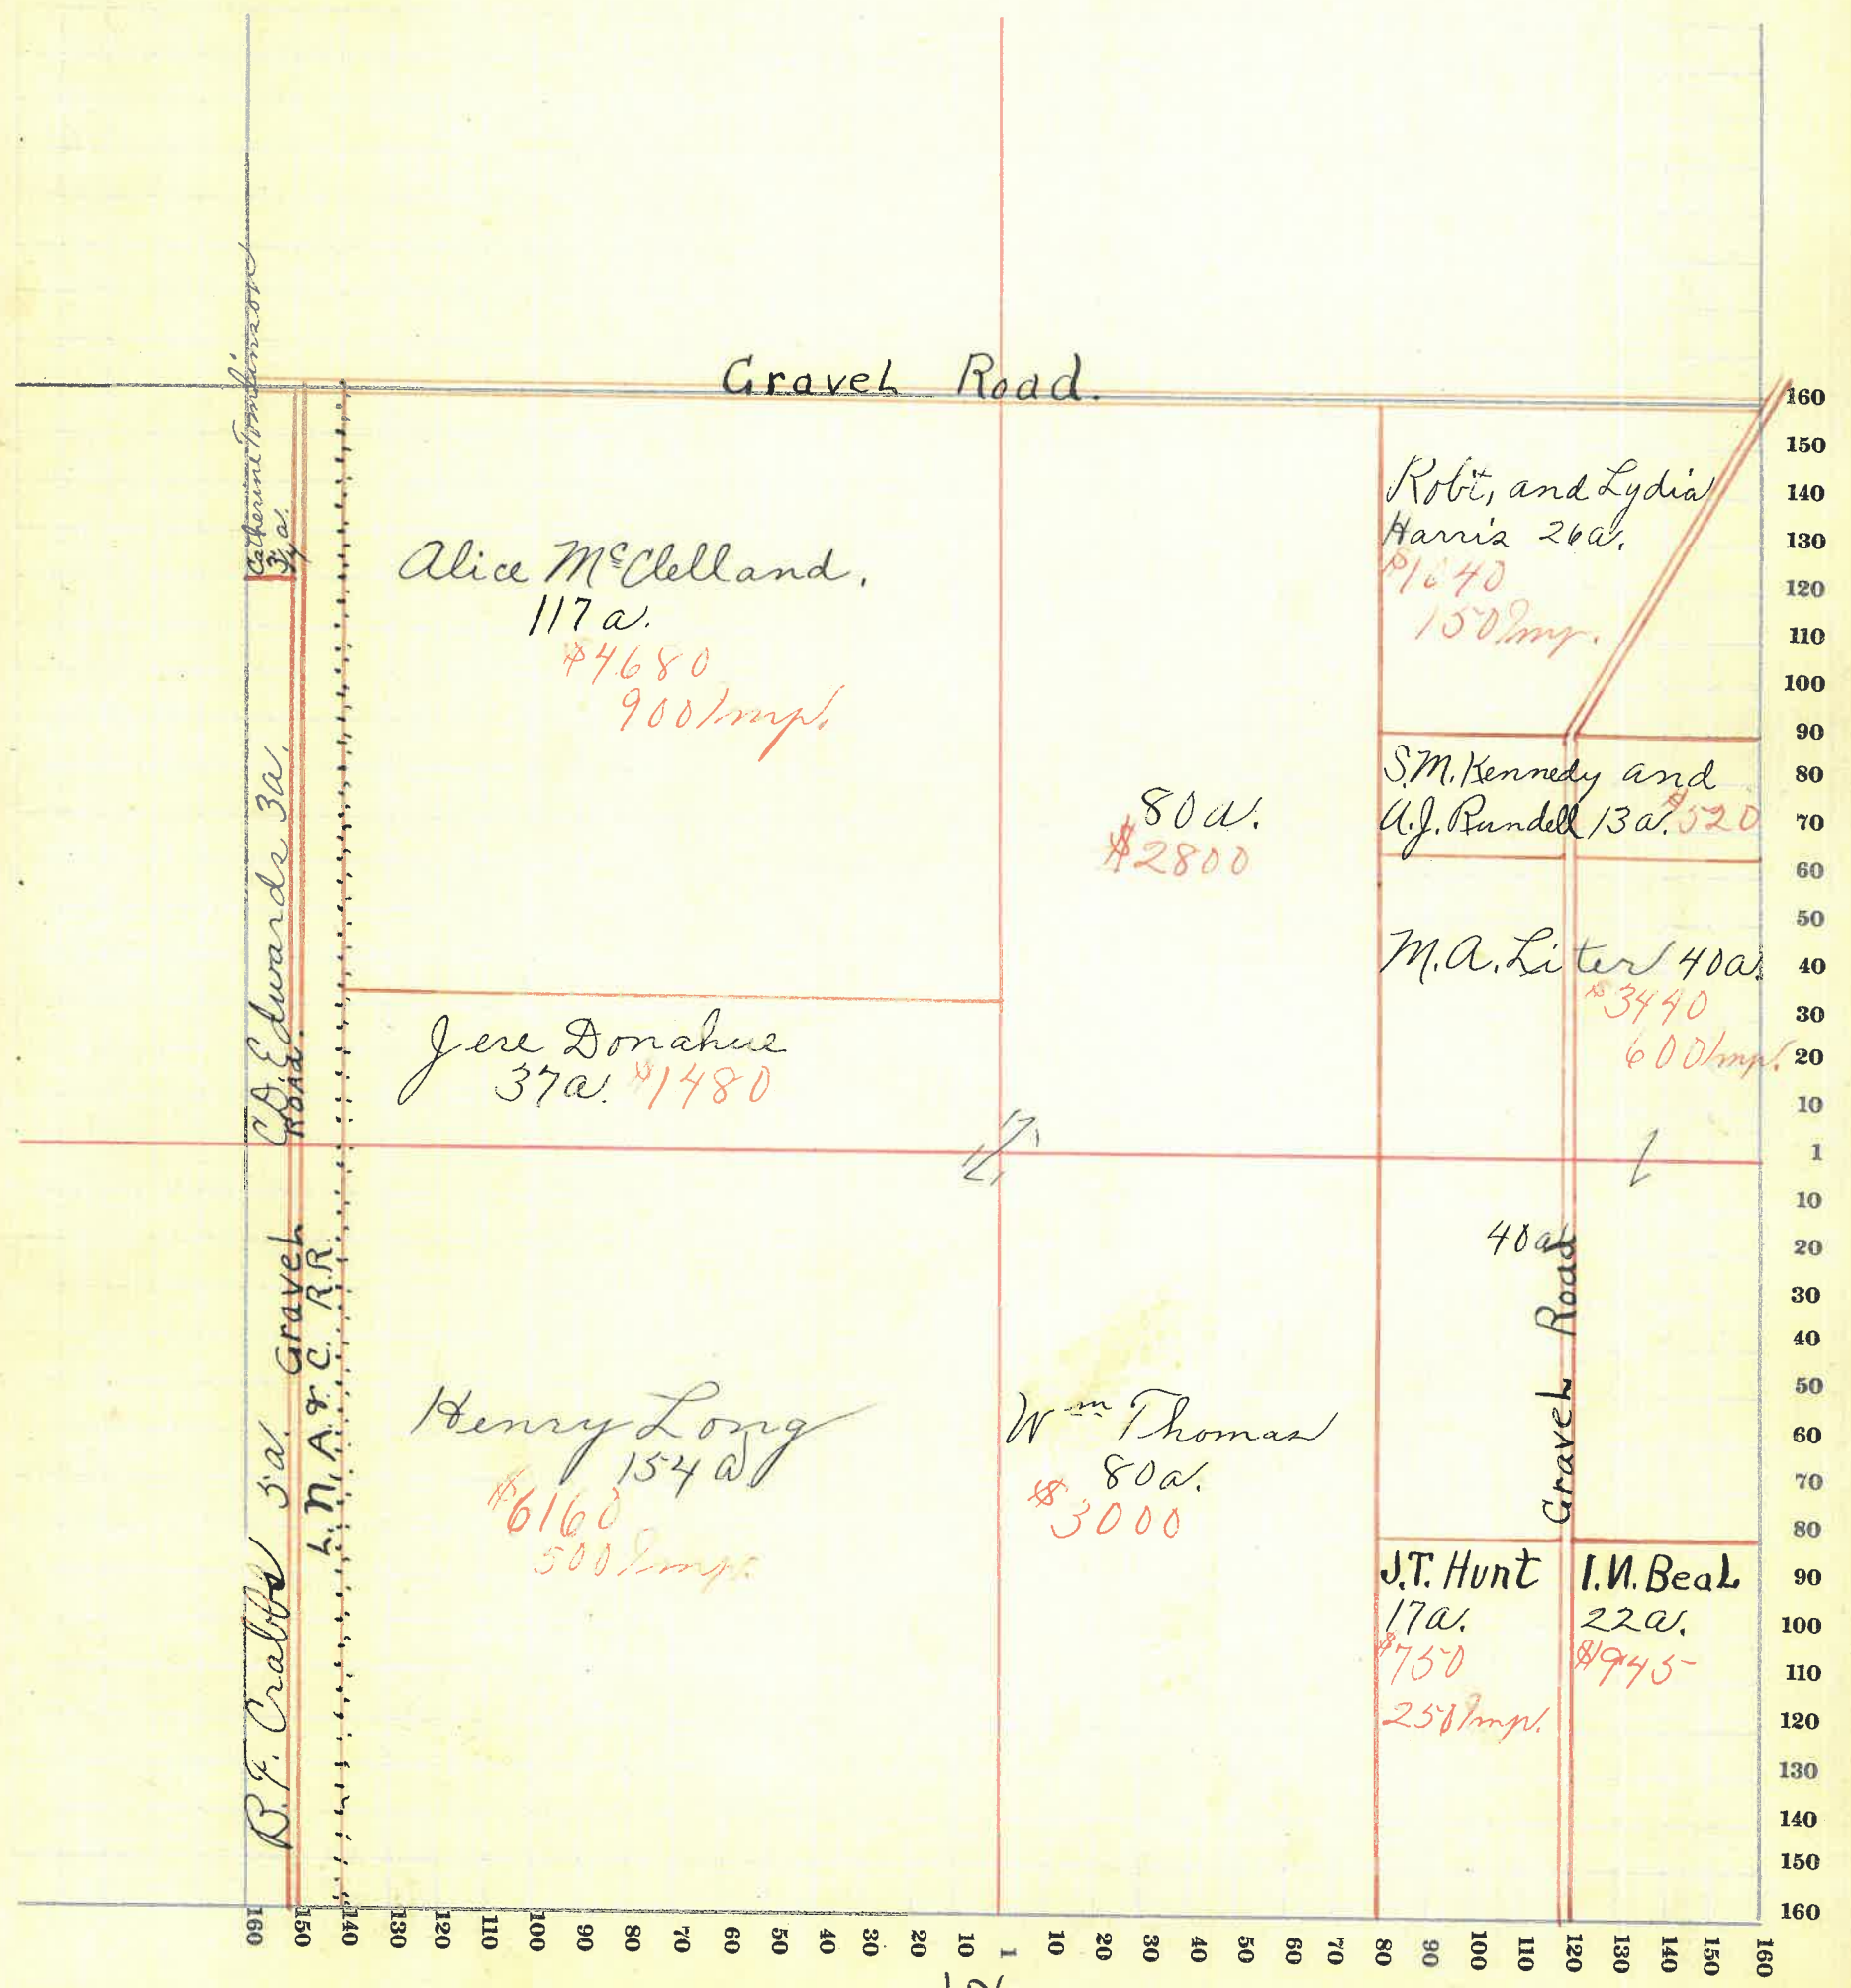 Gravel Road.
Catherine Tomlinson
Alice McClelland.
117 a.
$4680
900 Imp.
Robt, and Lydia
Harris 26a.
$1040
150 Imp.
80a.
$2800
S.M. Kennedy and
A.J. Rundell 13a. $520
M.A. Liter 40a.
$3440
600 Imp.
C.D. Edwards 3a.
Jere Donahue
37a. $1480
Gravel Road.
L. N. A. & C. R.R.
B.F. Crabbs 5a.
40a
Gravel Road
Henry Long
154 a
$6160
500 Imp.
Wm Thomas
80a.
$3000
J.T. Hunt
17a.
$750
250 Imp.
I.N. Beal
22a.
$945
160
150
140
130
120
110
100
90
80
70
60
50
40
30
20
10
1
10
20
30
40
50
60
70
80
90
100
110
120
130
140
150
160
160 150 140 130 120 110 100 90 80 70 60 50 40 30 20 10 1 10 20 30 40 50 60 70 80 90 100 110 120 130 140 150 160